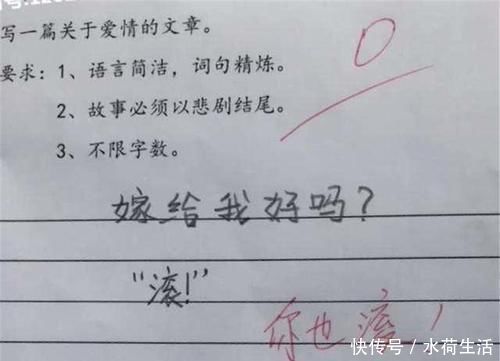 写一篇关于爱情的文章。
要求：1、语言简洁，词句精炼。
2、故事必须以悲剧结尾。
3、不限字数。
0
嫁给我好吗？
“滚！”
你也滚！
快传号/水荷生活